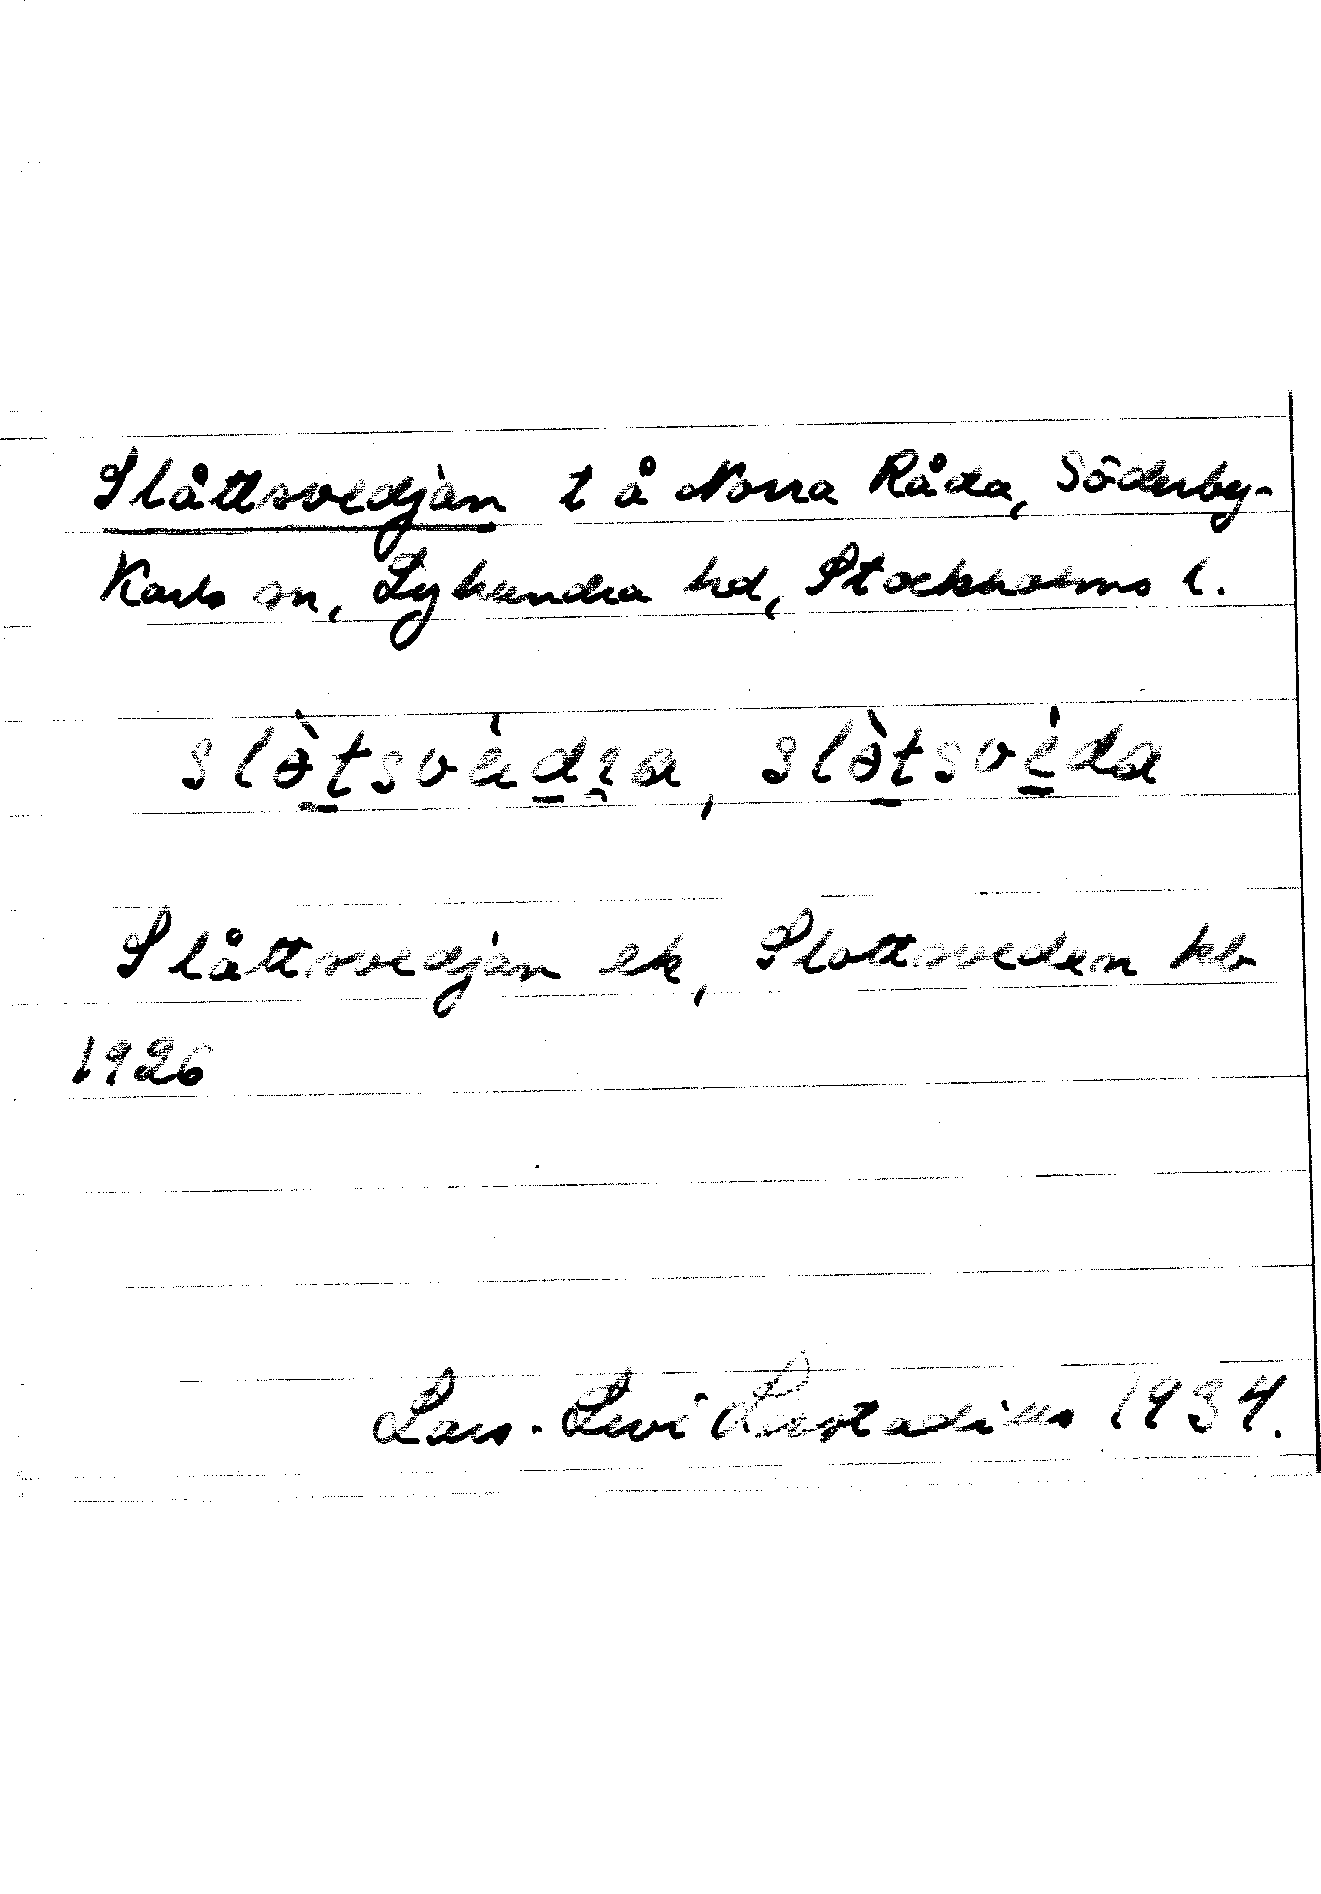 Slåttsvedjan t å Norra Råda, Söderby-
Karls sn, Lyhundra hd, Stockholms l.
slə̀tsvèdɩa, slə̀tsvéda
Slåttsvedjan ek, Slottsveden kb
1926
Lars-Levi Læstadius 1934.